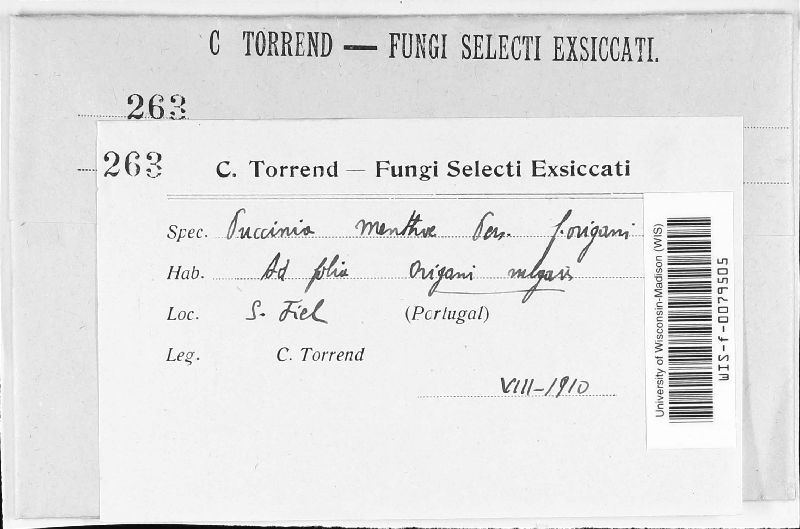 C TORREND — FUNGI SELECTI EXSICCATI.
263
263 C. Torrend — Fungi Selecti Exsiccati
Spec. Puccinia menthæ Pers. f. origani
Hab. Ad folia Origani vulgaris
Loc. S. Fiel (Portugal)
Leg. C. Torrend
VIII-1910
University of Wisconsin-Madison (WIS)
WIS-f-0079505